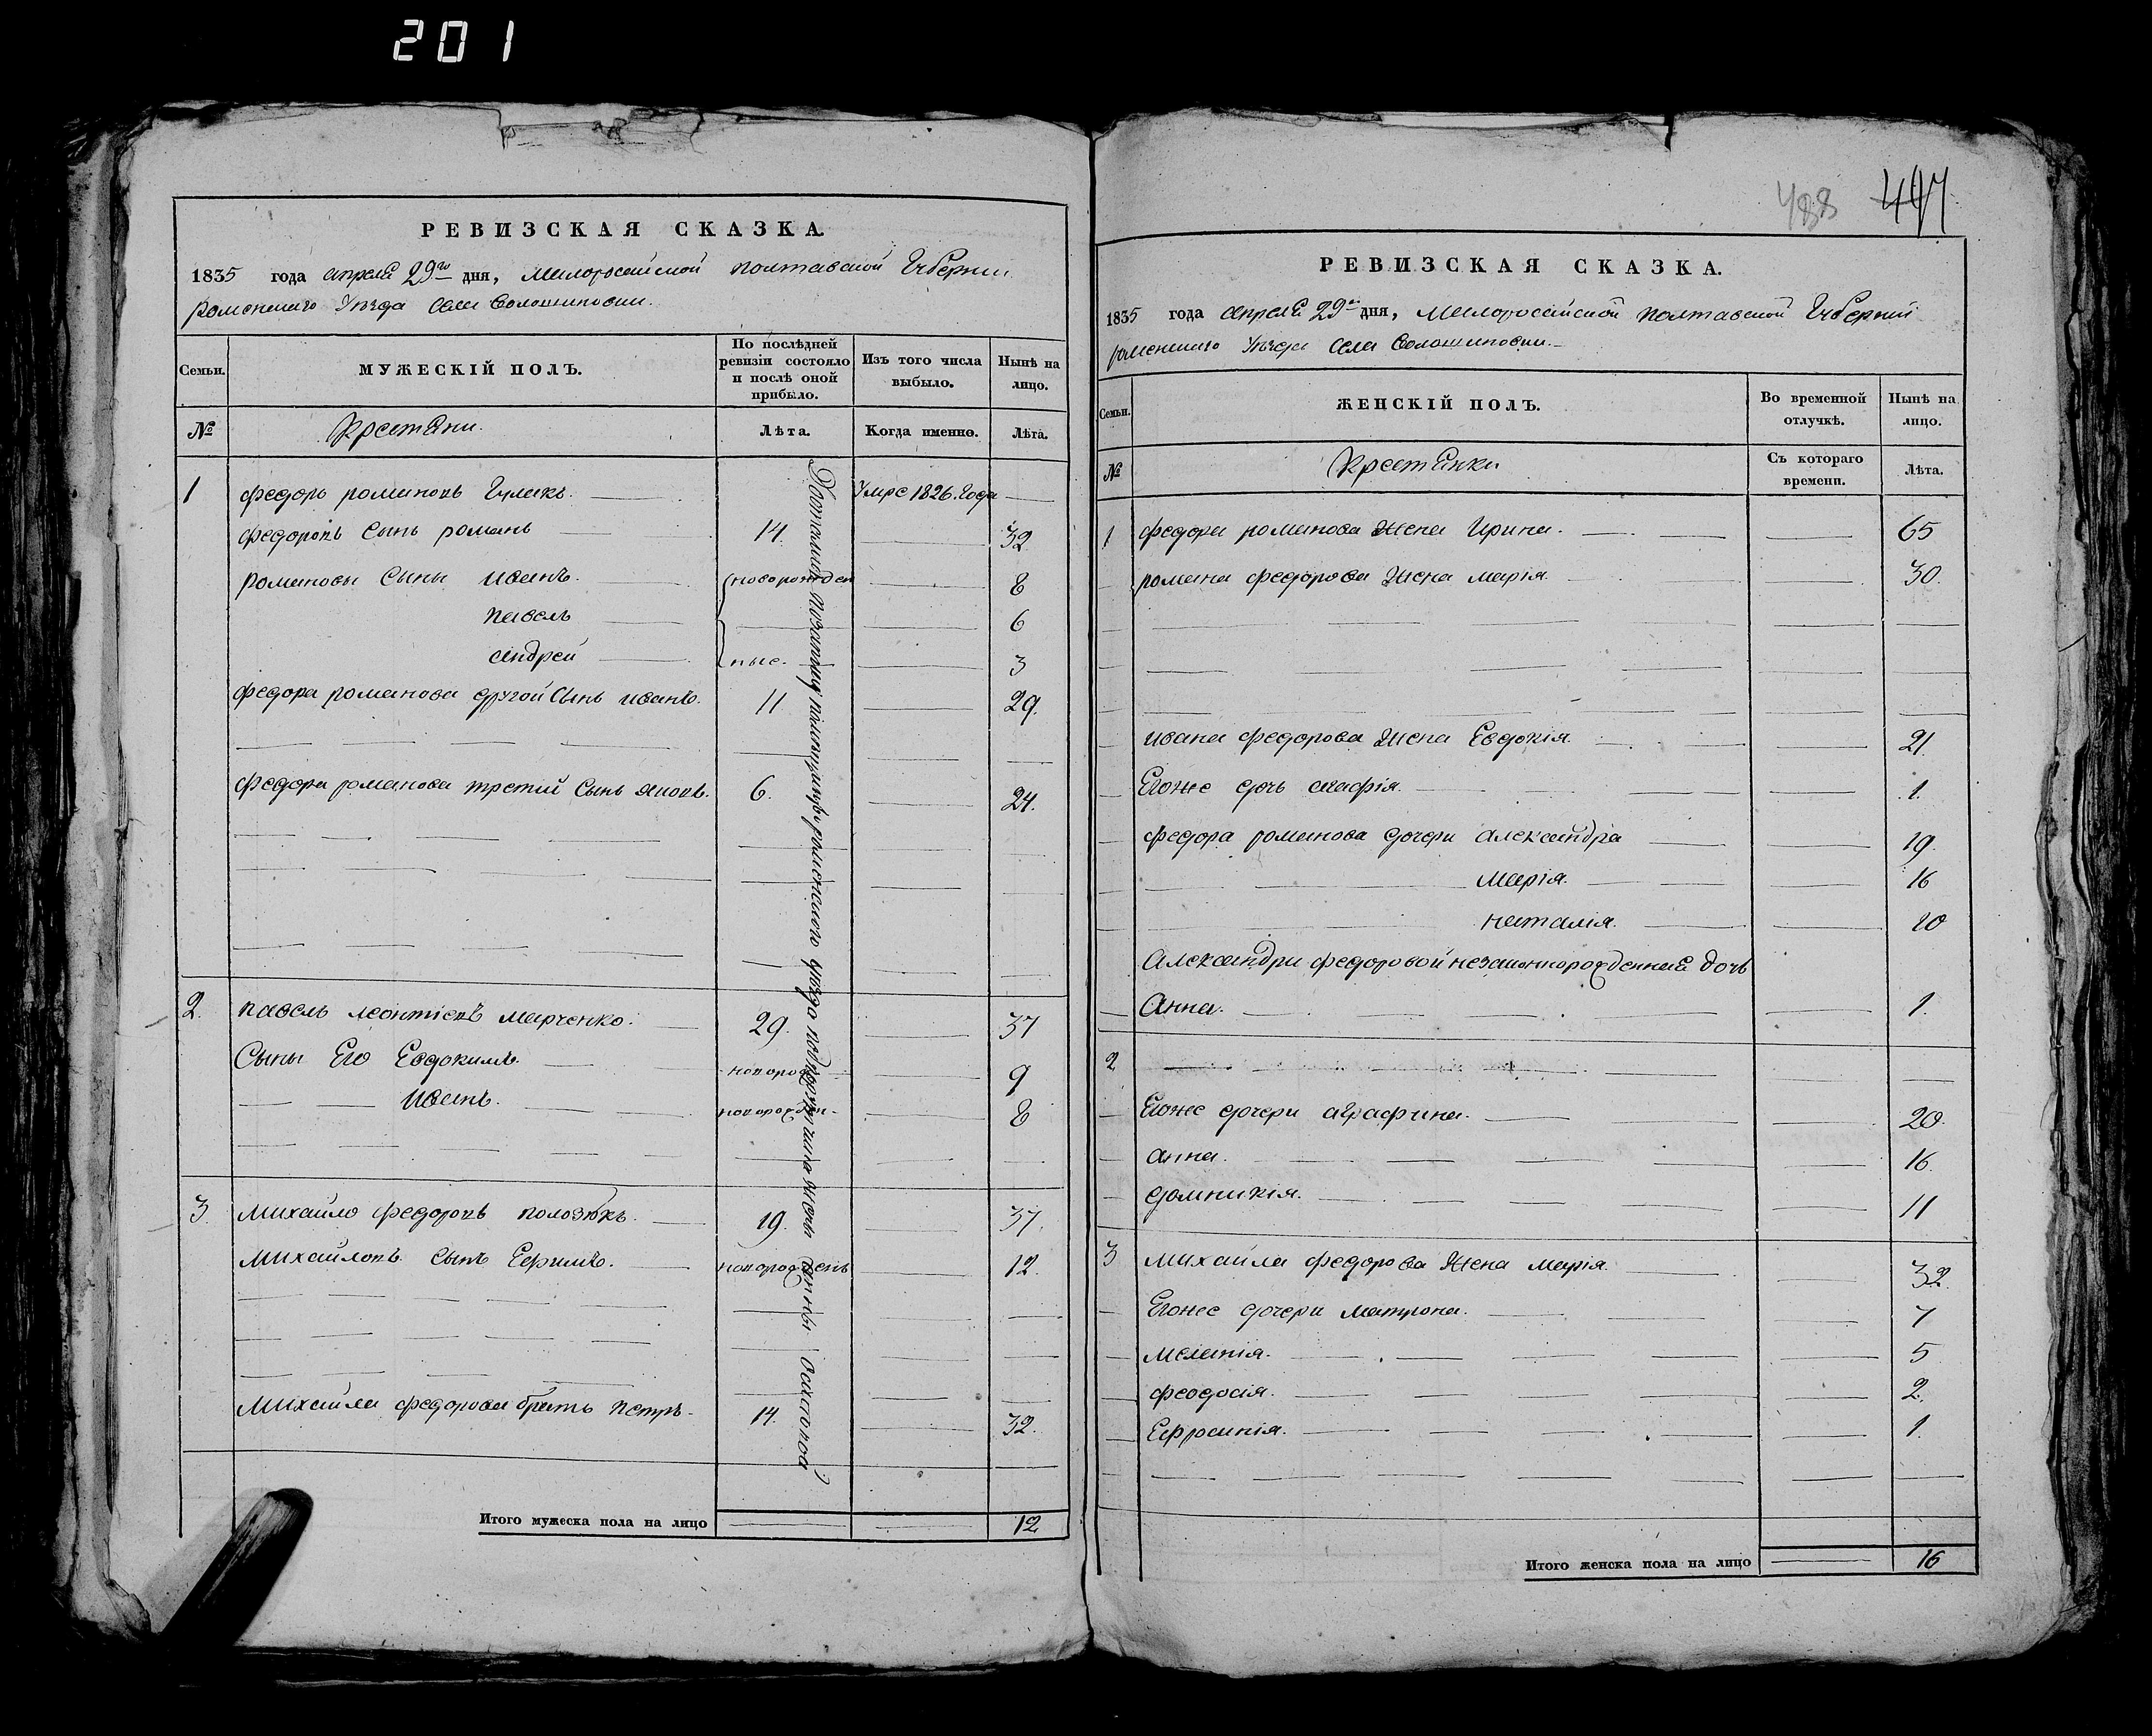 201
РЕВИЗСКАЯ СКАЗКА.
1835 года апреля 29го дня, Малоросейской полтавской Губернии
роменского Уезда села Волошиновки.
Семьи. МУЖЕСКІЙ ПОЛЪ. По послѣдней ревизіи состояло и послѣ оной прибыло. Изъ того числа выбыло. Нынѣ на лицо.
№ Крестяни. Лѣта. Когда именно. Лѣта.
1 федоръ романовъ Гулакъ. Умре 1826. Года
федоровъ Сынъ романъ 14. 32
романовы Сыны иванъ. новорожден 8
павелъ 6
андрей ные. 3
федора романова другой Сынъ иванъ. 11 29.
федора романова третий Сынъ яковъ. 6. 24.
2. павелъ леонтіевъ марченко. 29. 37
Сыны Его Евдокимъ. новорож 9
иванъ. новорожден 8
3. михайло федоровъ полозюкъ. 19. 37.
михайловъ. Сынъ Ефимъ. новорожденъ 12.
михайла федорова братъ петръ. 14. 32.
Итого мужеска пола на лицо 12
488 497
РЕВИЗСКАЯ СКАЗКА.
1835 года апреля 29го дня, Малоросейской полтавской Губерний
роменского Уезда Села Волошиновки.
Семьи. ЖЕНСКІЙ ПОЛЪ. Во временной отлучкѣ. Нынѣ на лицо.
№ Крестянки Съ котораго времени. Лѣта.
1 федора романова жена Ирина. 65
романа федорова жена марія. 30.
ивана федорова жена Евдокія. 21.
Егоже дочь агафія. 1.
федора романова дочери александра 19.
марія. 16
наталія. 10
Александри федоровой незаконнорожденная дочь
Анна. 1.
2
Егоже дочери аграфина. 20.
анна. 16.
домникія. 11
3 михайла федорова жена марія. 32.
Егоже дочери матрона. 7
меланія. 5
феодосія. 2.
Ефросинія. 1.
Итого женска пола на лицо 16